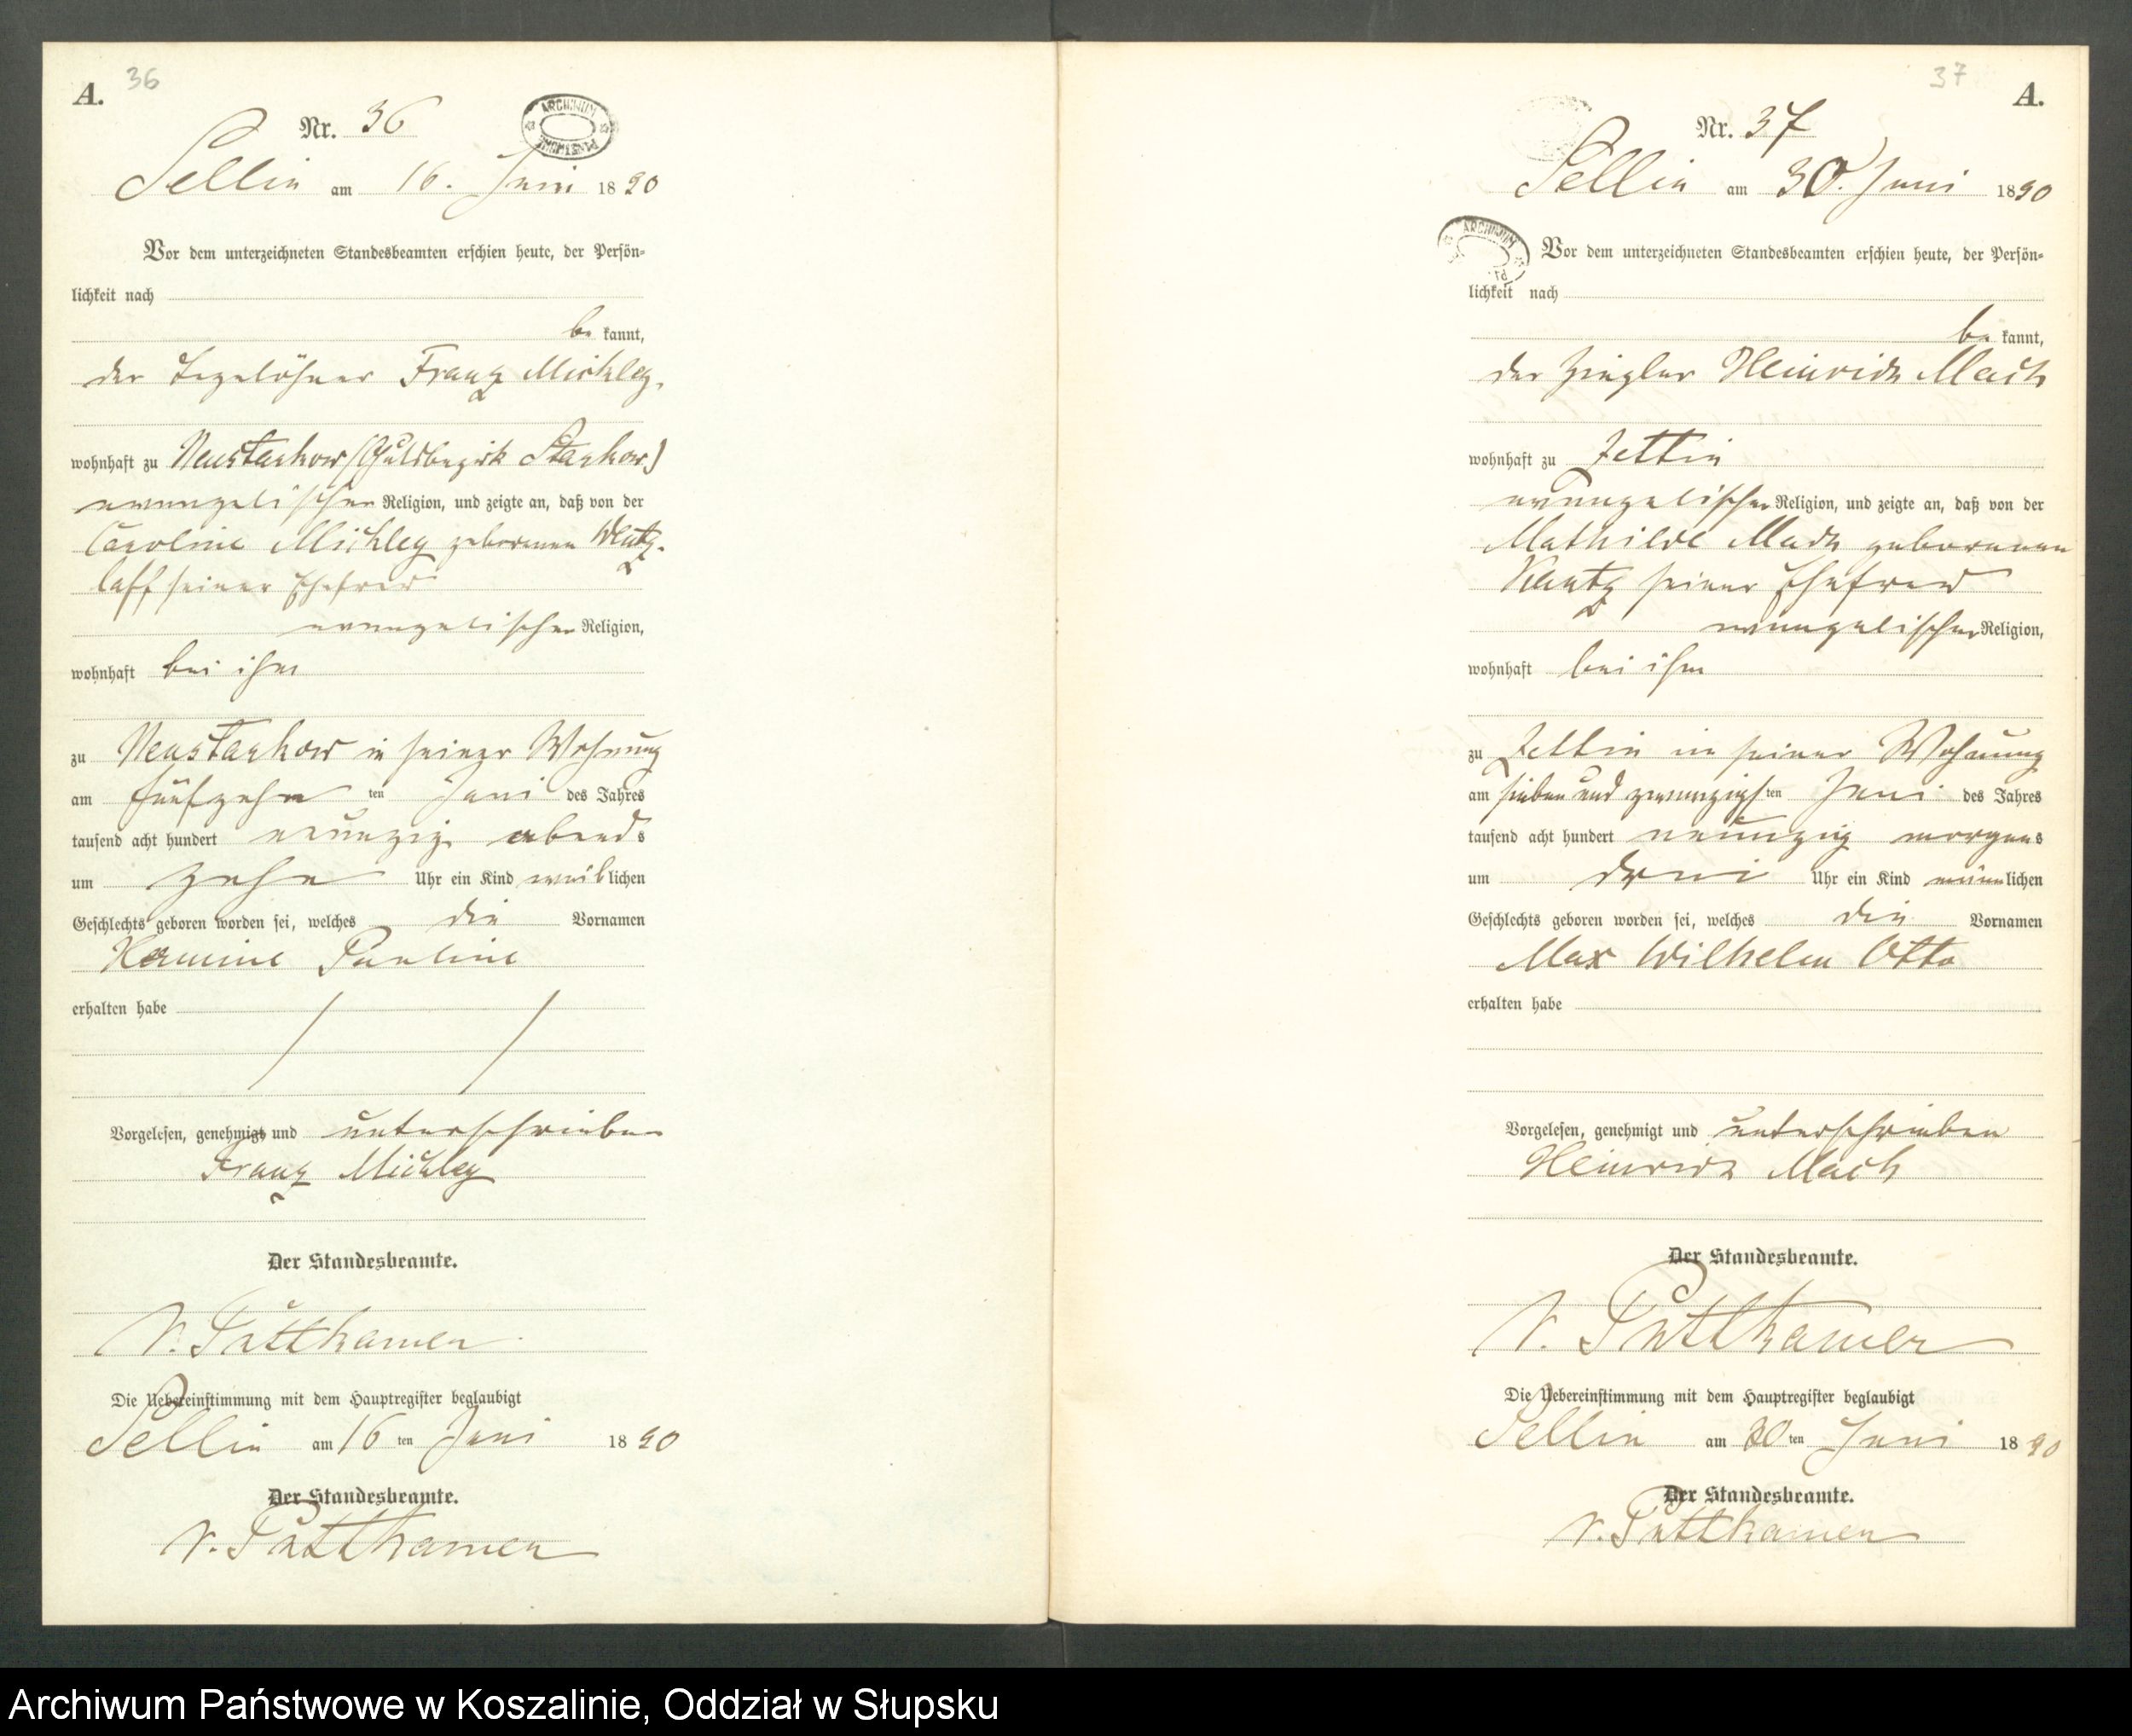 A. 36
Nr. 36
ARCHIWUM PAŃSTWOWE
Sellin am 16. Juni 1890
Vor dem unterzeichneten Standesbeamten erschien heute, der Persön-
lichkeit nach
be kannt,
der Tagelöhner Franz Michley,
wohnhaft zu Neustarkow (Gutsbezirk Starkow)
evangelischer Religion, und zeigte an, daß von der
Caroline Michley geborenen Wentz-
laff seiner Ehefrau
evangelischer Religion,
wohnhaft bei ihm
zu Neustarkow in seiner Wohnung
am fünfzehn ten Juni des Jahres
tausend acht hundert neunzig abends
um zehn Uhr ein Kind weiblichen
Geschlechts geboren worden sei, welches die Vornamen
Hermine Pauline
erhalten habe
Vorgelesen, genehmigt und unterschrieben
Franz Michley
Der Standesbeamte.
v. Puttkamer
Die Uebereinstimmung mit dem Hauptregister beglaubigt
Sellin am 16 ten Juni 1890
Der Standesbeamte.
v. Puttkamer
37 A.
Nr. 37
Sellin am 30. Juni 1890
ARCHIWUM
Vor dem unterzeichneten Standesbeamten erschien heute, der Persön-
lichkeit nach
be kannt,
der Ziegler Heinrich Mach
wohnhaft zu Zettin
evangelischer Religion, und zeigte an, daß von der
Mathilde Mach geborenen
Kautz seiner Ehefrau
evangelischer Religion,
wohnhaft bei ihm
zu Zettin in seiner Wohnung
am sieben und zwanzigsten Juni des Jahres
tausend acht hundert neunzig morgens
um drei Uhr ein Kind männlichen
Geschlechts geboren worden sei, welches die Vornamen
Max Wilhelm Otto
erhalten habe
Vorgelesen, genehmigt und unterschrieben
Heinrich Mach
Der Standesbeamte.
v. Puttkamer
Die Uebereinstimmung mit dem Hauptregister beglaubigt
Sellin am 30 ten Juni 1890
Der Standesbeamte.
v. Puttkamer
Archiwum Państwowe w Koszalinie, Oddział w Słupsku